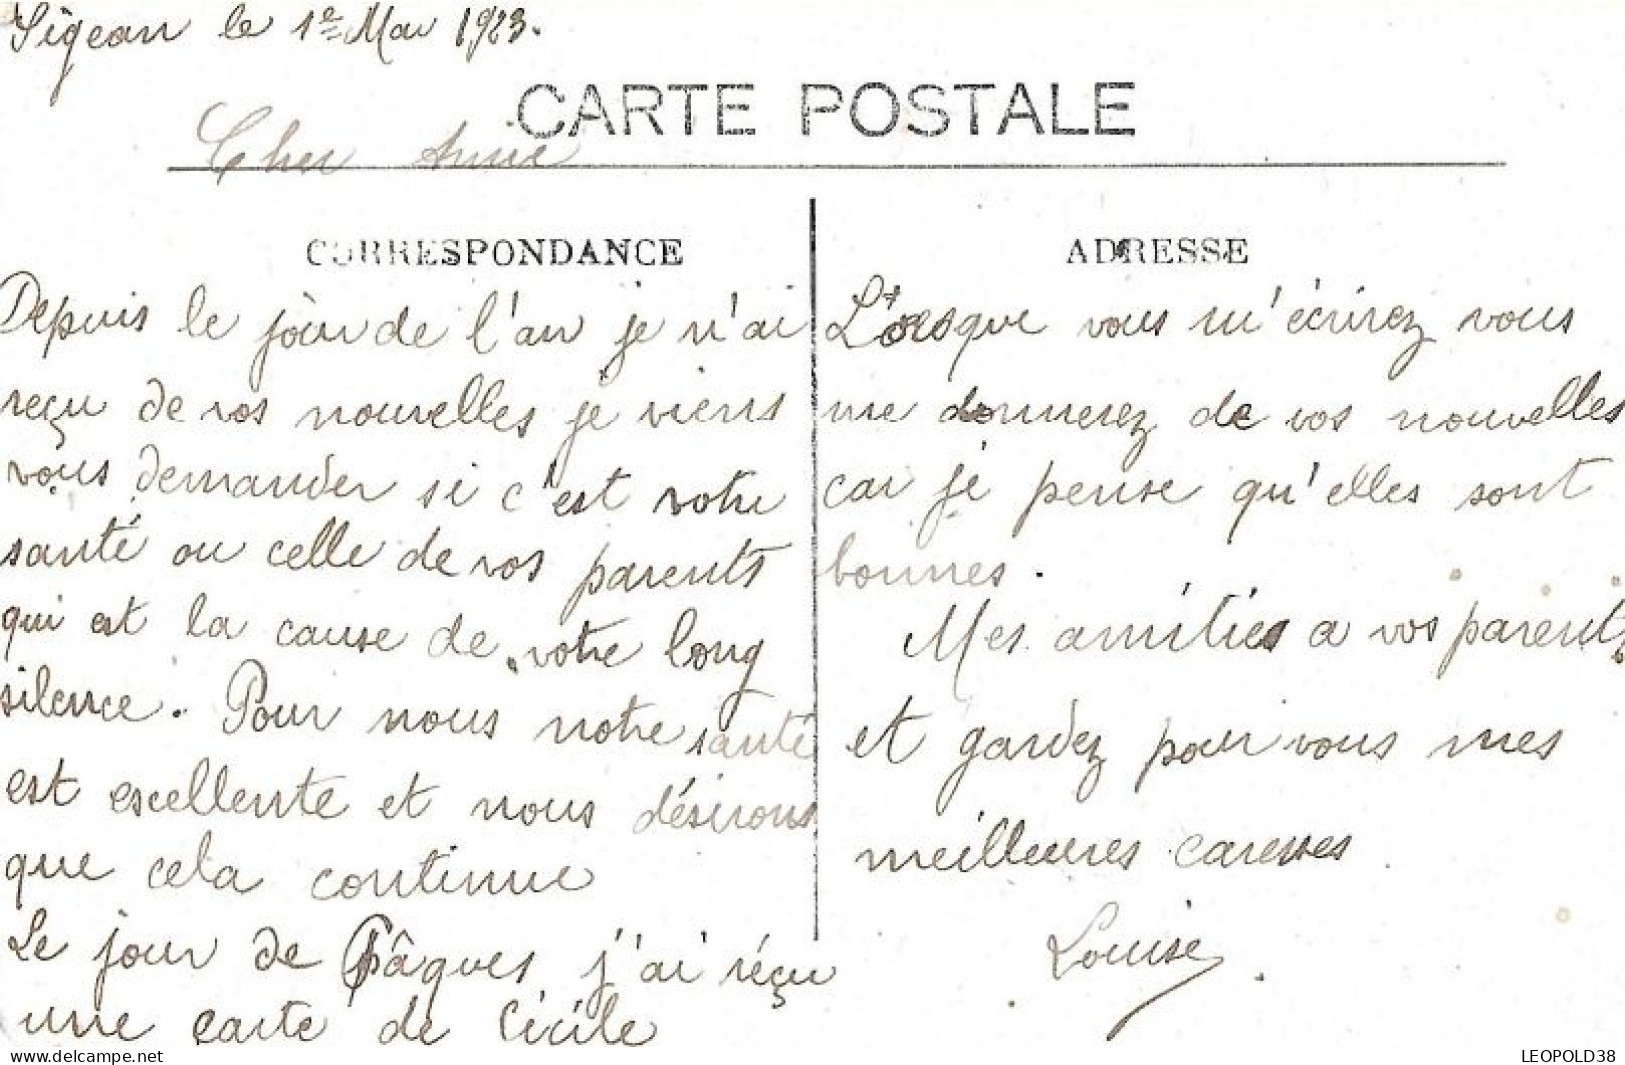 Sigean le 1e Mai 1923.
CARTE POSTALE
Cher Amie
CORRESPONDANCE
Depuis le jour de l'an je n'ai
reçu de vos nouvelles je viens
vous demander si c'est votre
santé ou celle de vos parents
qui est la cause de votre long
silence. Pour nous notre santé
est excellente et nous désirons
que cela continue
Le jour de Pâques j'ai réçu
une carte de Cicile
ADRESSE
Lorsque vous m'écrirez vous
me donnerez de vos nouvelles
car je pense qu'elles sont
bonnes.
Mes amitiés a vos parents
et gardez pour vous mes
meilleures caresses
Louise
www.delcampe.net
LEOPOLD38